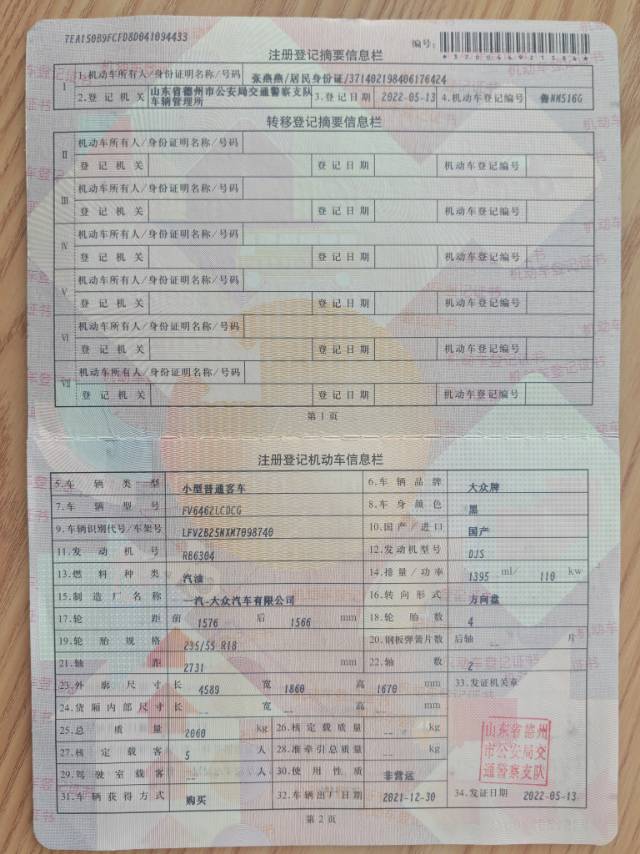 7EA150B9FCFD8D041094433
编号:
注册登记摘要信息栏
I 1.机动车所有人/身份证明名称/号码 张燕燕/居民身份证/371402198406176424
2.登记机关 山东省德州市公安局交通警察支队车辆管理所 3.登记日期 2022-05-13 4.机动车登记编号 鲁NM516G
转移登记摘要信息栏
II 机动车所有人/身份证明名称/号码
登记机关 登记日期 机动车登记编号
III 机动车所有人/身份证明名称/号码
登记机关 登记日期 机动车登记编号
IV 机动车所有人/身份证明名称/号码
登记机关 登记日期 机动车登记编号
V 机动车所有人/身份证明名称/号码
登记机关 登记日期 机动车登记编号
VI 机动车所有人/身份证明名称/号码
登记机关 登记日期 机动车登记编号
VII 机动车所有人/身份证明名称/号码
登记机关 登记日期 机动车登记编号
第1页
注册登记机动车信息栏
5.车辆类型 小型普通客车 6.车辆品牌 大众牌
7.车辆型号 FV6462LCDCG 8.车身颜色 黑
9.车辆识别代号/车架号 LFV2B25NXM7098740 10.国产/进口 国产
11.发动机号 RB6304 12.发动机型号 DJS
13.燃料种类 汽油 14.排量/功率 1395 ml/ 110 kw
15.制造厂名称 一汽-大众汽车有限公司 16.转向形式 方向盘
17.轮距 前 1576 后 1566 mm 18.轮胎数 4
19.轮胎规格 235/55 R18 20.钢板弹簧片数 后轴 -- 片
21.轴距 2731 mm 22.轴数 2
23.外廓尺寸 长 4589 宽 1860 高 1670 mm 33.发证机关章
24.货厢内部尺寸 长 -- 宽 -- 高 -- mm
25.总质量 2060 kg 26.核定载质量 -- kg
27.核定载客 5 人 28.准牵引总质量 -- kg
29.驾驶室载客 -- 人 30.使用性质 非营运
山东省德州
市公安局交
通警察支队
31.车辆获得方式 购买 32.车辆出厂日期 2021-12-30 34.发证日期 2022-05-13
第2页